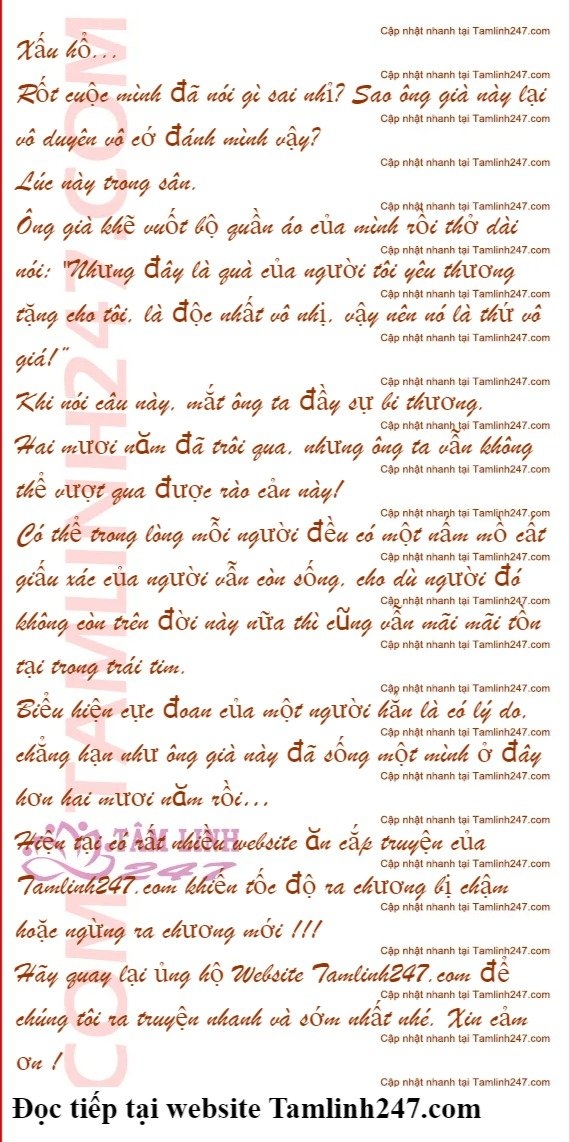 Cập nhật nhanh tại Tamlinh247.com
Xấu hổ...
Cập nhật nhanh tại Tamlinh247.com
Rốt cuộc mình đã nói gì sai nhỉ? Sao ông già này lại
Cập nhật nhanh tại Tamlinh247.com
vô duyên vô cớ đánh mình vậy?
Cập nhật nhanh tại Tamlinh247.com
Lúc này trong sân.
Cập nhật nhanh tại Tamlinh247.com
Ông già khẽ vuốt bộ quần áo của mình rồi thở dài
Cập nhật nhanh tại Tamlinh247.com
nói: "Nhưng đây là quà của người tôi yêu thương
Cập nhật nhanh tại Tamlinh247.com
tặng cho tôi, là độc nhất vô nhị, vậy nên nó là thứ vô
Cập nhật nhanh tại Tamlinh247.com
giá!"
Cập nhật nhanh tại Tamlinh247.com
Khi nói câu này, mắt ông ta đầy sự bi thương.
Cập nhật nhanh tại Tamlinh247.com
Hai mươi năm đã trôi qua, nhưng ông ta vẫn không
Cập nhật nhanh tại Tamlinh247.com
thể vượt qua được rào cản này!
Cập nhật nhanh tại Tamlinh247.com
Có thể trong lòng mỗi người đều có một nấm mồ cất
Cập nhật nhanh tại Tamlinh247.com
giấu xác của người vẫn còn sống, cho dù người đó
Cập nhật nhanh tại Tamlinh247.com
không còn trên đời này nữa thì cũng vẫn mãi mãi tồn
Cập nhật nhanh tại Tamlinh247.com
tại trong trái tim.
Cập nhật nhanh tại Tamlinh247.com
Biểu hiện cực đoan của một người hẳn là có lý do,
Cập nhật nhanh tại Tamlinh247.com
chẳng hạn như ông già này đã sống một mình ở đây
Cập nhật nhanh tại Tamlinh247.com
hơn hai mươi năm rồi...
Cập nhật nhanh tại Tamlinh247.com
Hiện tại có rất nhiều website ăn cắp truyện của
TÂM LINH
247
Cập nhật nhanh tại Tamlinh247.com
Tamlinh247.com khiến tốc độ ra chương bị chậm
Cập nhật nhanh tại Tamlinh247.com
hoặc ngừng ra chương mới !!!
Cập nhật nhanh tại Tamlinh247.com
Hãy quay lại ủng hộ Website Tamlinh247.com để
Cập nhật nhanh tại Tamlinh247.com
chúng tôi ra truyện nhanh và sớm nhất nhé. Xin cảm
Cập nhật nhanh tại Tamlinh247.com
ơn !
Cập nhật nhanh tại Tamlinh247.com
COM TAMLINH247.COM
Đọc tiếp tại website Tamlinh247.com